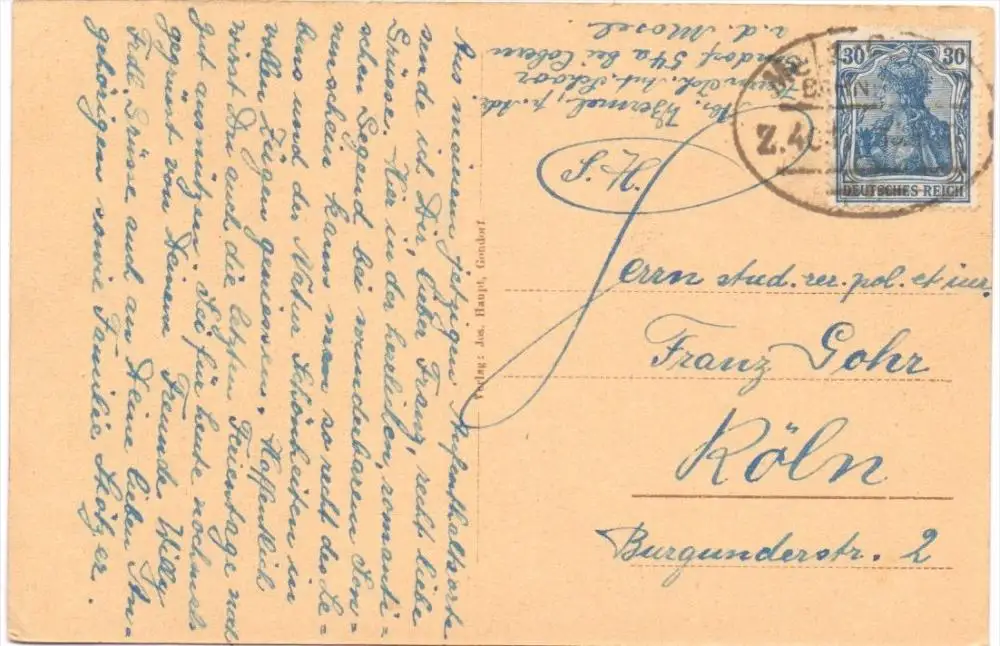 Aus meinem jetzigen Aufenthaltsorte
sende ich Dir, lieber Franz, recht liebe
Grüsse. Hier in der herlichen, romanti=
schen Gegend bei wunderbarem Son=
nenschein kann man so recht des Le=
bens und der Natur Schönheiten in
vollen Zügen geniessen. Hoffentlich
wirst Du auch die letzten Ferientage noch
gut ausnützen. Sei für heute nochmals
gegrüsst von Deinem Freunde Willy
Frdl. Grüsse auch an Deine lieben An-
gehörigen sowie Familie
Verlag: Jos. Haupt, Gondorf
Abs. Wermel, z. Zt.
Gondorf 54a bei Cobern
a. d. Mosel
30 30
DEUTSCHES-REICH
Z. 40
Herrn stud. rer. pol. et iur.
Franz Gohr
Köln
Burgunderstr. 2